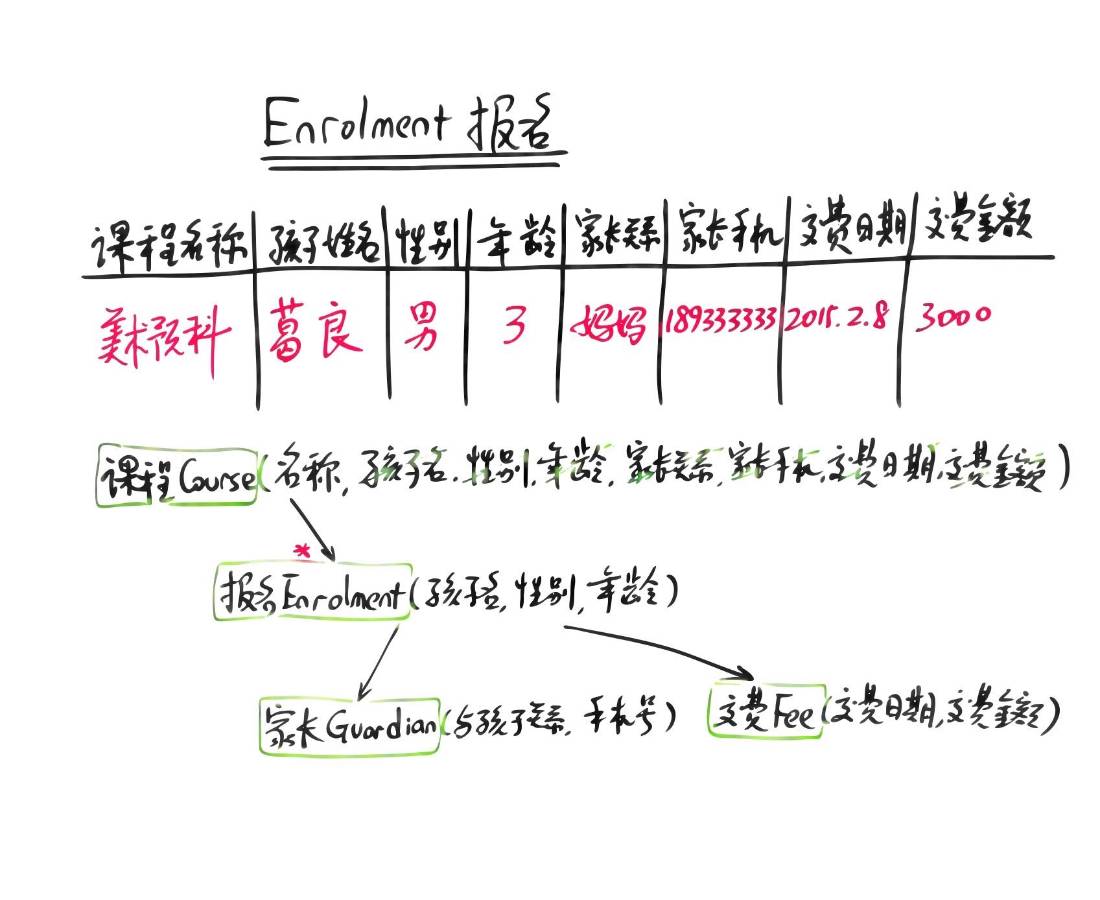 Enrolment 报名
课程名称 孩子姓名 性别 年龄 家长关系 家长手机 交费日期 交费金额
美术预科 葛良 男 3 妈妈 189333333 2015.2.8 3000
课程Course(名称,孩子名.性别,年龄,家长关系,家长手机,交费日期,交费金额)
*
报名Enrolment(孩子名,性别,年龄)
家长Guardian(与孩子关系,手机号) 交费Fee(交费日期,交费金额)